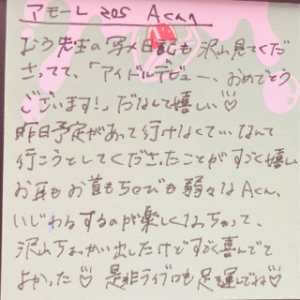 アモーレ 205 Aくんへ
むう先生の写メ日記も沢山見てくだ
さってて、「アイドルデビュー、おめでとう
ございます!」だなんて嬉しい♡
昨日予定があって行けなくて…なんて
行こうとしてくださったことがすごく嬉しい
お耳もお首もちくびも弱々なAくん、
いじわるするのが楽しくなっちゃって、
沢山ちょっかい出したけどすごく喜んでて
よかった♡ 是非ライブにも足を運んでね♡